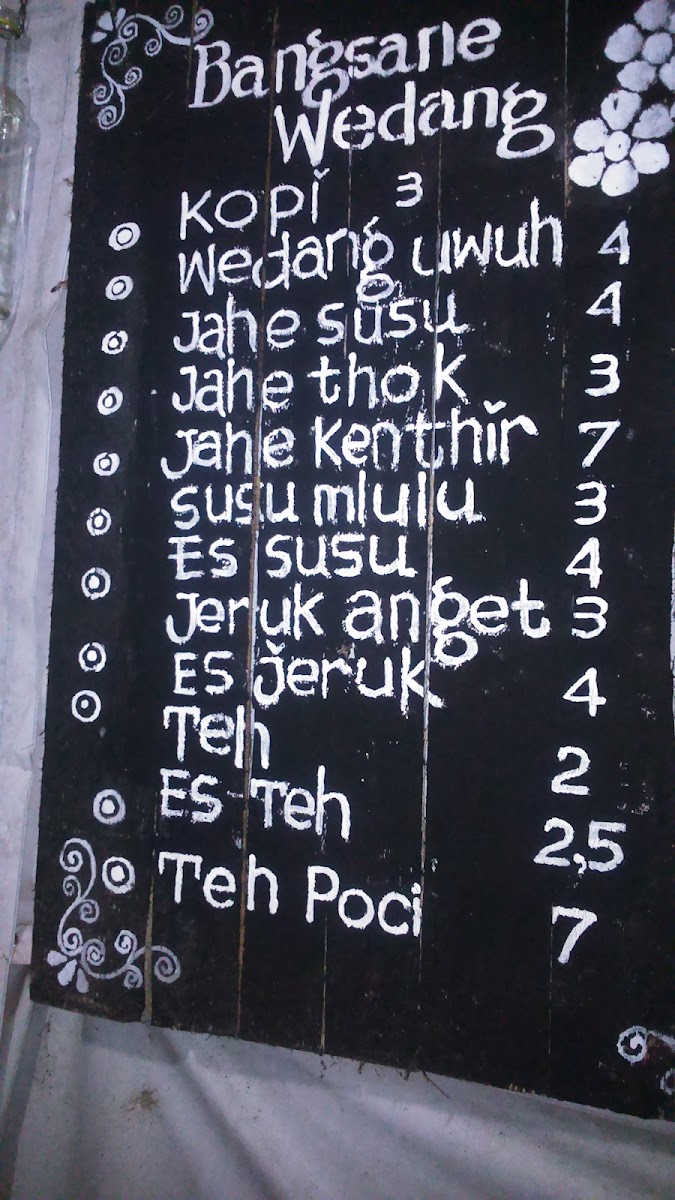 Bangsane
Wedang
Kopi 3
Wedang uwuh 4
Jahe susu 4
Jahe thok 3
Jahe Kenthir 7
susu mlulu 3
Es susu 4
Jeruk anget 3
ES jeruk 4
Teh 2
ES Teh 2,5
Teh Poci 7